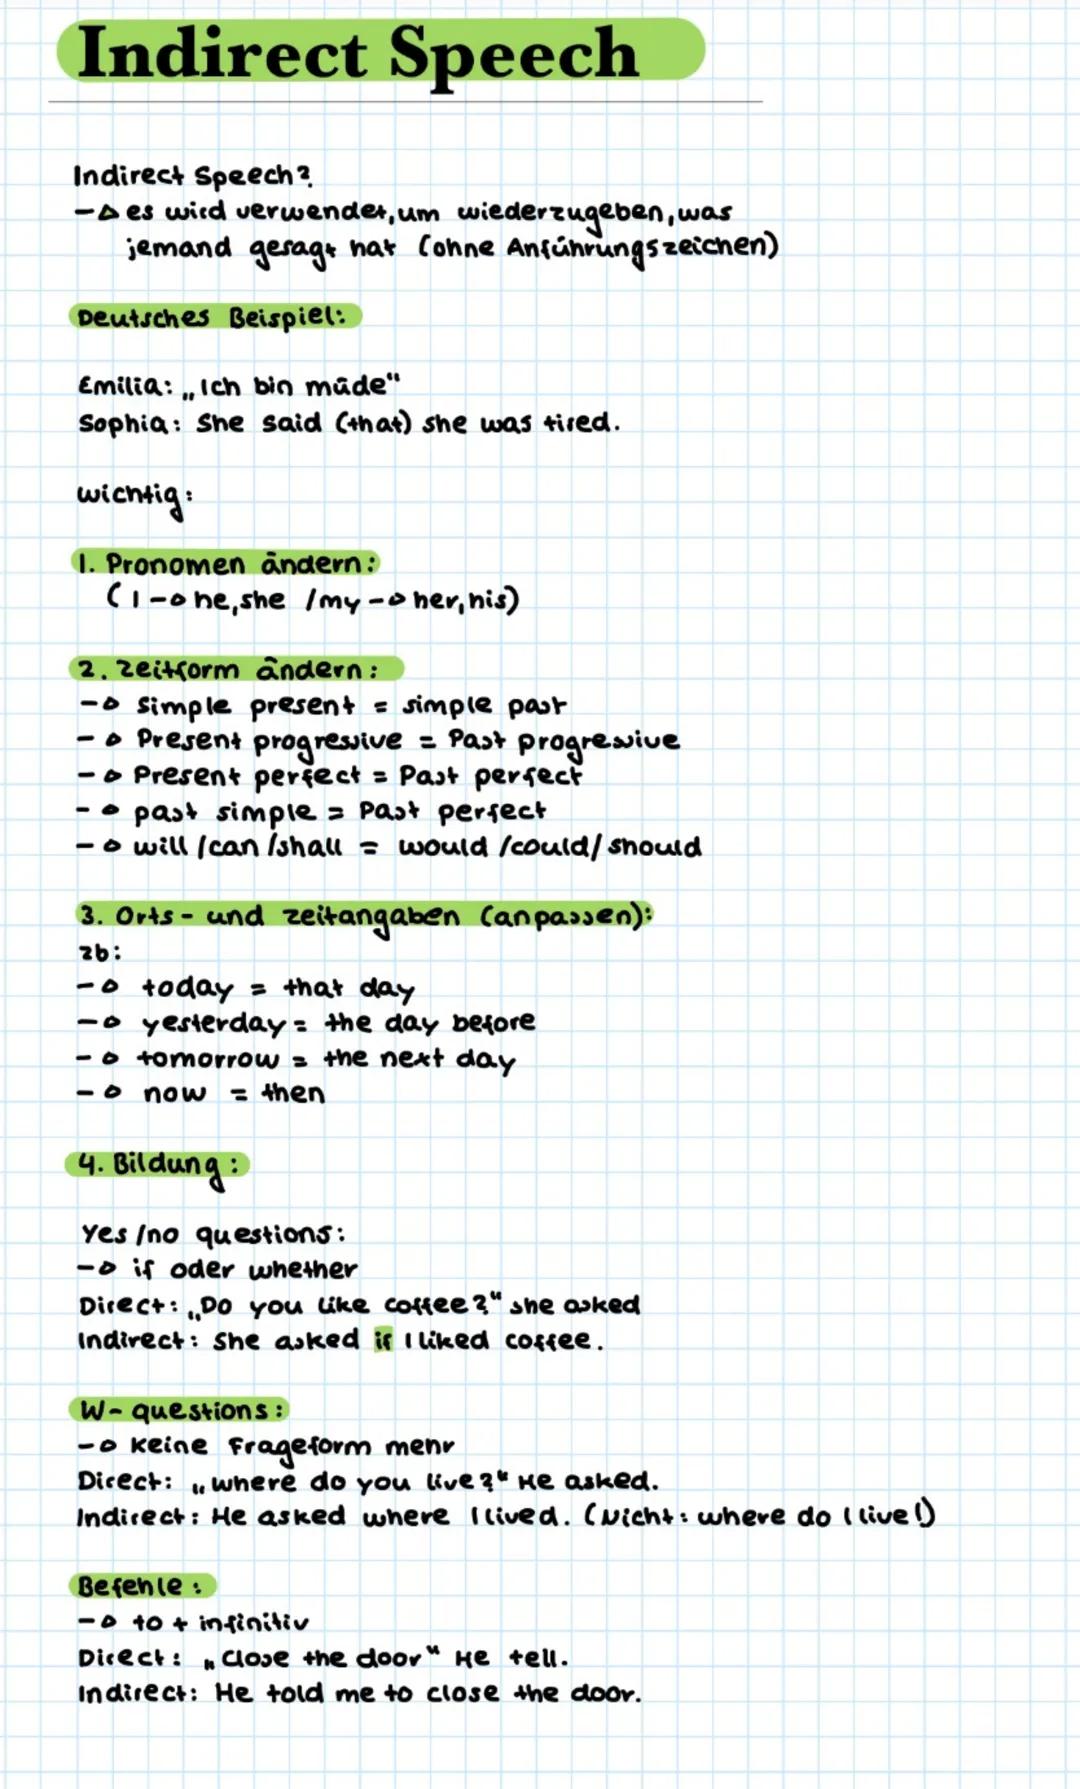 Indirect Speech
Indirect Speech?
→ es wird verwendet, um wiederzugeben, was
jemand gesagt hat (ohne Anführungszeichen)
Deutsches Beispiel:
Emilia: „Ich bin müde"
Sophia: She said (that) she was tired.
wichtig:
1. Pronomen ändern:
(I → he, she / my → her, his)
2. Zeitform ändern:
→ Simple present = simple past
→ Present progressive = Past progressive
→ Present perfect = Past perfect
→ past simple = Past perfect
→ will / can / shall = would / could / should
3. Orts- und Zeitangaben (anpassen):
zb:
→ today = that day
→ yesterday = the day before
→ tomorrow = the next day
→ now = then
4. Bildung:
Yes / no questions:
→ if oder whether
Direct: „Do you like coffee?" she asked
Indirect: She asked if I liked coffee.
W-questions:
→ Keine Frageform mehr
Direct: „where do you live?" He asked.
Indirect: He asked where I lived. (Nicht: where do I live!)
Befehle:
→ to + infinitiv
Direct: „Close the door" He tell.
Indirect: He told me to close the door.